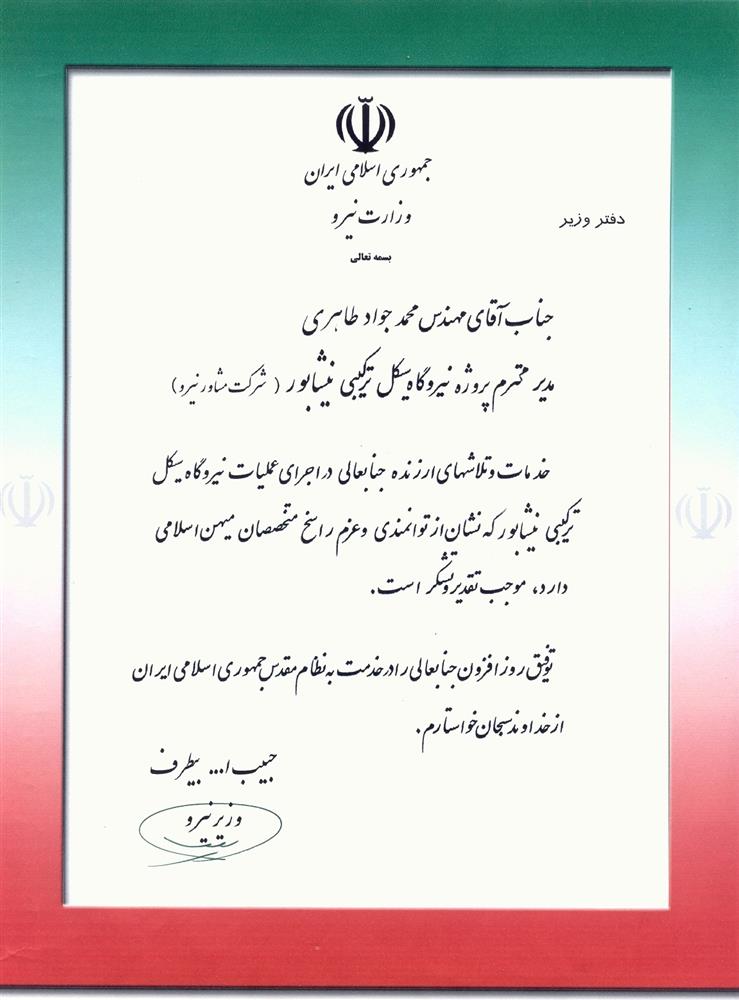 جمهوری اسلامی ایران
وزارت نیرو
دفتر وزیر
بسمه تعالی
جناب آقای مهندس محمد جواد طاهری
مدیر محترم پروژه نیروگاه سیکل ترکیبی نیشابور ( شرکت مشاور نیرو )
خدمات و تلاشهای ارزنده جنابعالی در اجرای عملیات نیروگاه سیکل
ترکیبی نیشابور که نشان از توانمندی و عزم راسخ متخصصان میهن اسلامی
دارد، موجب تقدیر و تشکر است.
توفیق روز افزون جنابعالی را در خدمت به نظام مقدس جمهوری اسلامی ایران
از خداوند سبحان خواستارم.
حبیب ا... بیطرف
وزیر نیرو